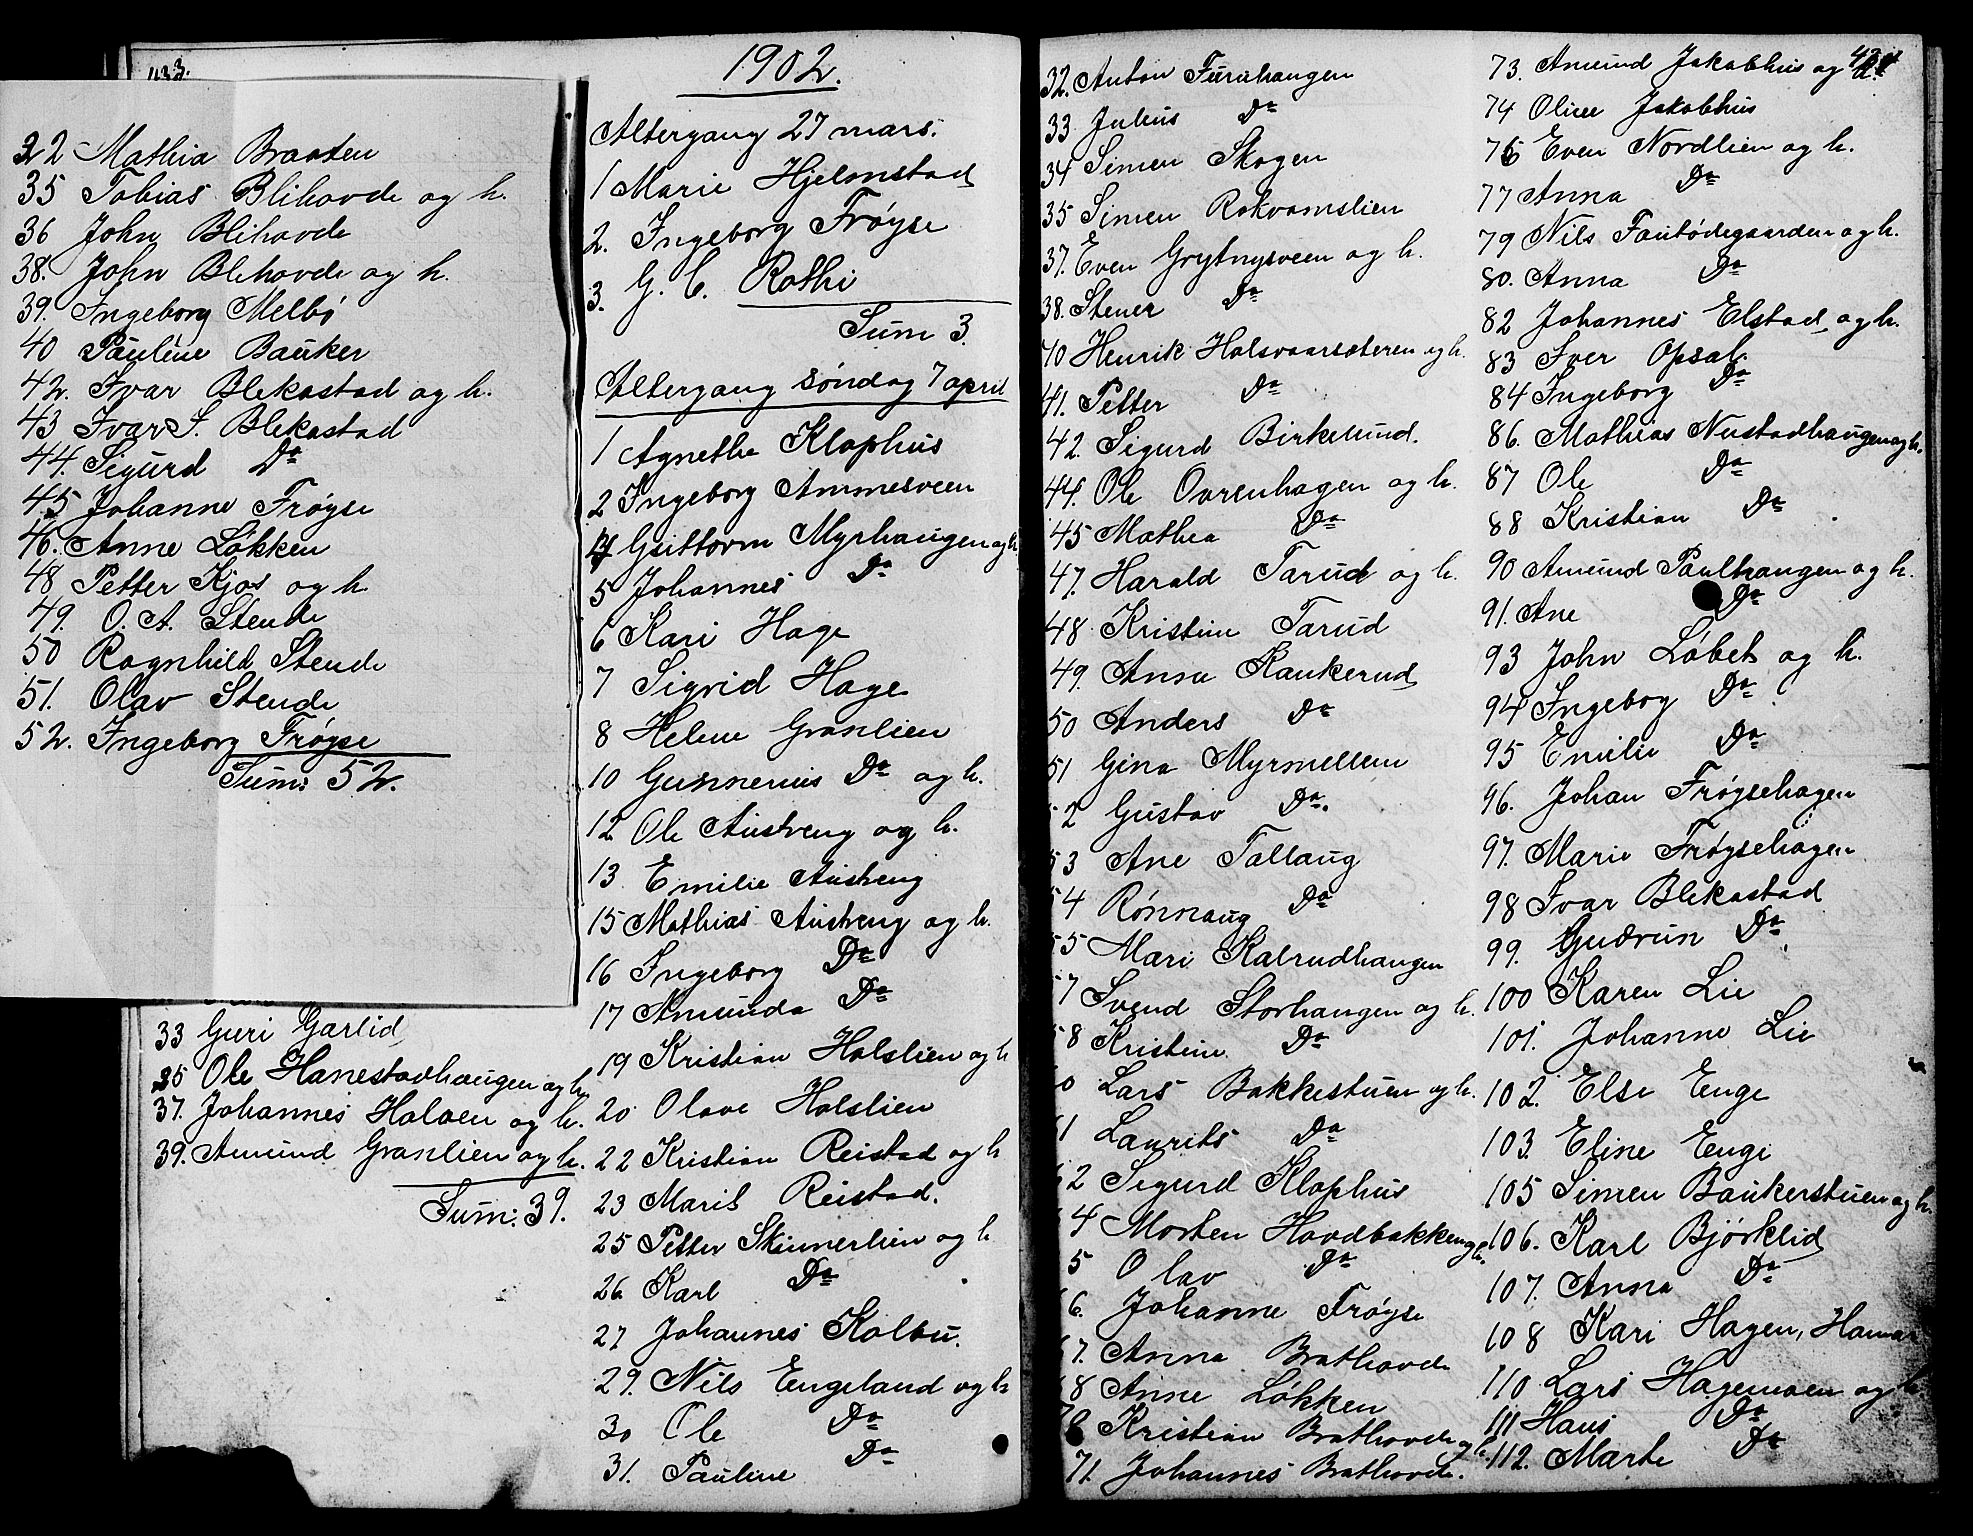 433.
22 Mathia Braaten
35 Tobias Blihovde og h.
36 John Blihovde
38. John Blehovde og h.
39. Ingeborg Melbö
40 Pauline Bauker
42. Ivar Blekastad og h.
43 Ivar S. Blekastad
44. Sigurd Do
45 Johanne Frøyse
46. Anne Løkken
48 Petter Kjos og h
49. O. A. Stende
50 Ragnhild Stende
51. Olav Stende
52. Ingeborg Frøyse
Sum: 52.
33 Guri Garlid
35 Ole Hanestadhaugen og h
37. Johannes Halven og h.
39. Amund Granlien og h.
Sum: 39.
1902.
Altergang 27 mars.
1 Marie Hjelmstad
2. Ingeborg Frøyse
3. G. C. Rothi
Sum 3.
Altergang søndag 7 april
1 Agnethe Klophus
2 Ingeborg Ammesveen
4 Guttorm Myrhaugen og h
5 Johannes Do
6 Kari Hage
7 Sigrid Hage
8 Helene Granlien
10 Gunnerius Do og h.
12 Ole Austreng og h.
13 Emilie Austreng
15 Mathias Austreng og h.
16 Ingeborg Do
17 Amunda Do
19 Kristian Holslien og h
20 Olave Holslien
22 Kristian Reistad og h
23 Marit Reistad.
25 Petter Skinnerlien og h
26 Karl Do
27 Johannes Kolbu.
29. Nils Engeland og h
30 Ole Do
31. Pauline Do
32. Anton Furuhaugen
33 Julius Do
34 Simen Skogen
35 Simen Rokvamslien
37. Even Grytnysveen og h.
38. Stener Do
40 Henrik Halsvaarsæteren og h.
41. Petter Do
42. Sigurd Birkelund.
44. Ole Ovrenhagen og h.
45 Mathea Do
47. Harald Tarud og h.
48 Kristine Tarud
49. Anna Kaukerud
50 Anders Do
51 Gina Myrmellem
52 Gustav Do.
53 Ane Tallaug
54 Rønnaug Do
55 Mari Kalrudhaugen
57 Svend Storhaugen og h.
58 Kristine Do
60 Lars Bakkestuen og h.
61 Laurits Do
62 Sigurd Klophus
64 Morten Hovdbakken og h.
65 Olav Do
66. Johanne Frøyse
67. Anna Brathovde
68 Anne Løkken
70 Kristian Brathovde og h.
71. Johannes Brathovde.
434
73. Amund Jakobhus og h.
74 Oline Jakobhus
76 Even Nordlien og h.
77 Anna Do
79 Nils Fautødegaarden og h.
80. Anna Do
82 Johannes Elstad og h.
83 Iver Opsal.
84 Ingeborg Do
86. Mathias Nustadhaugen og h.
87 Ole Do
88 Kristian Do
90 Amund Paulhaugen og h.
91. Ane Do
93 John Løbet og h.
94 Ingebog Do
95 Emilie Do
96. Johan Frøysehagen
97. Marie Frøysehagen
98 Ivar Blekastad
99. Gudrun Do
100 Karen Lie
101. Johanne Lie
102. Else Enge
103. Eline Enge
105 Simen Baukerstuen og h.
106. Karl Bjørklid
107. Anna Do
108 Kari Hagen, Hamar
110 Lars Hagemoen og h.
111 Hans Do
112. Marte Do